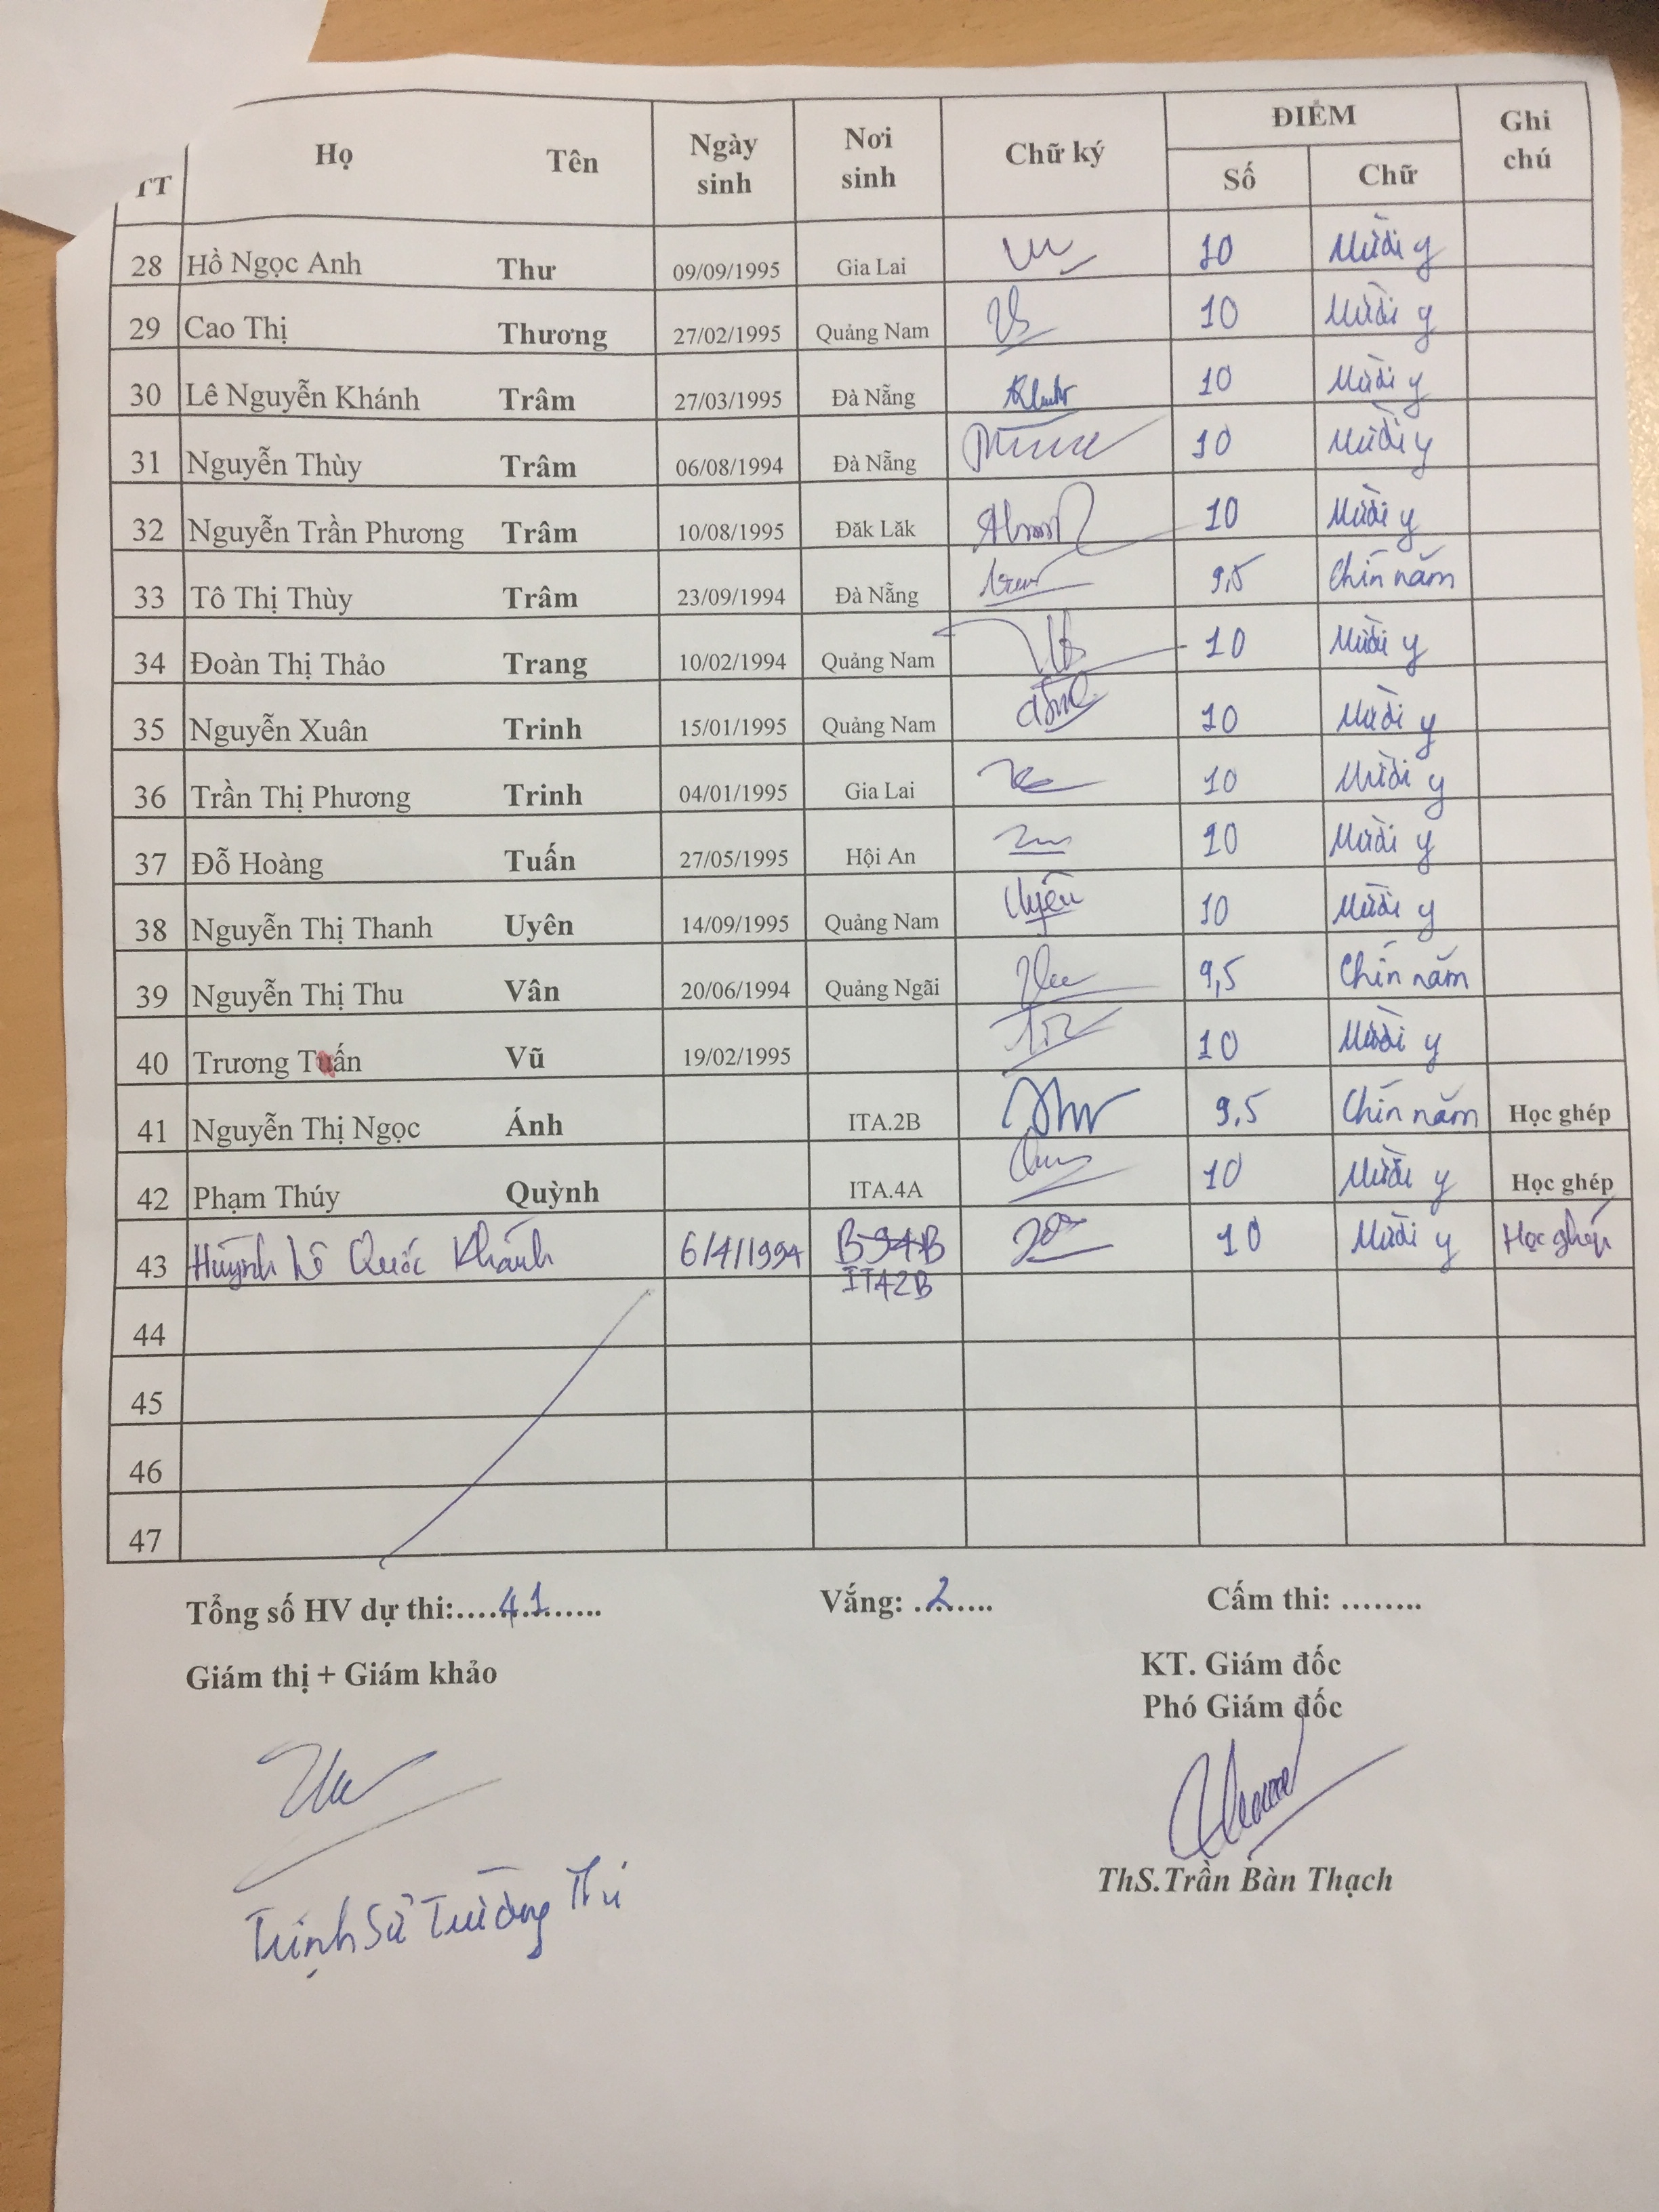 TT Họ Tên Ngày sinh Nơi sinh Chữ ký ĐIỂM Số Chữ Ghi chú
28 Hồ Ngọc Anh Thư 09/09/1995 Gia Lai 10 Mười y
29 Cao Thị Thương 27/02/1995 Quảng Nam 10 Mười y
30 Lê Nguyễn Khánh Trâm 27/03/1995 Đà Nẵng 10 Mười y
31 Nguyễn Thùy Trâm 06/08/1994 Đà Nẵng 10 Mười y
32 Nguyễn Trần Phương Trâm 10/08/1995 Đăk Lăk 10 Mười y
33 Tô Thị Thùy Trâm 23/09/1994 Đà Nẵng 9,5 Chín năm
34 Đoàn Thị Thảo Trang 10/02/1994 Quảng Nam 10 Mười y
35 Nguyễn Xuân Trinh 15/01/1995 Quảng Nam 10 Mười y
36 Trần Thị Phương Trinh 04/01/1995 Gia Lai 10 Mười y
37 Đỗ Hoàng Tuấn 27/05/1995 Hội An 10 Mười y
38 Nguyễn Thị Thanh Uyên 14/09/1995 Quảng Nam Uyên 10 Mười y
39 Nguyễn Thị Thu Vân 20/06/1994 Quảng Ngãi 9,5 Chín năm
40 Trương Tuấn Vũ 19/02/1995 10 Mười y
41 Nguyễn Thị Ngọc Ánh ITA.2B 9,5 Chín năm Học ghép
42 Phạm Thúy Quỳnh ITA.4A 10 Mười y Học ghép
43 Huỳnh Lê Quốc Khánh 6/4/1994 10 Mười y Học ghép
ITA2B
44
45
46
47
Tổng số HV dự thi:....41....... Vắng: .2..... Cấm thi: ........
Giám thị + Giám khảo KT. Giám đốc
Phó Giám đốc
ThS.Trần Bàn Thạch
Trịnh Sử Trường Thi